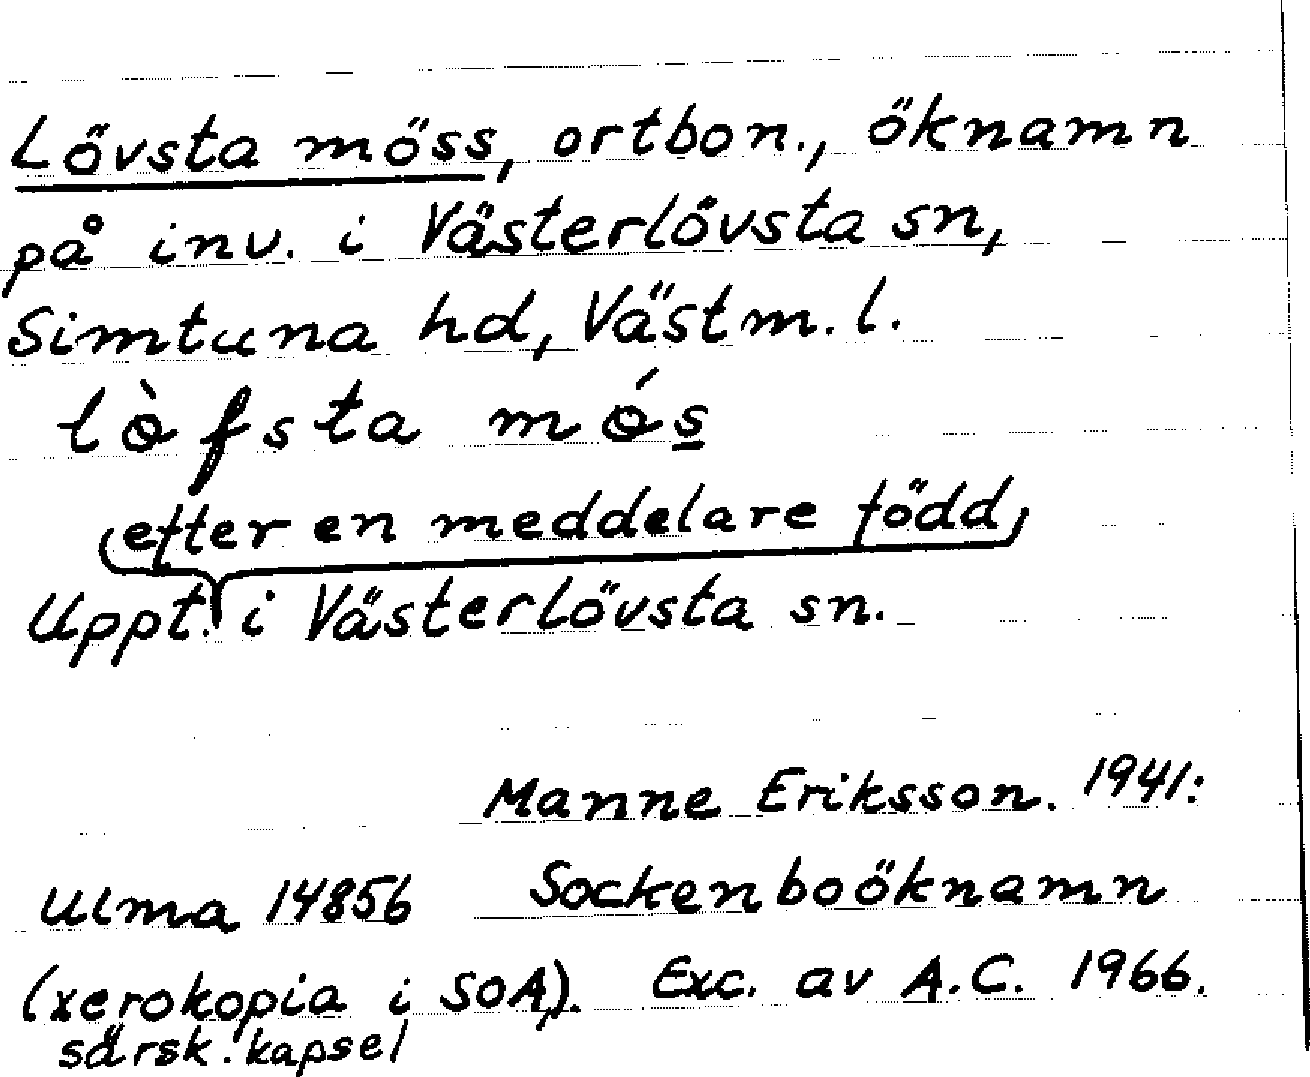 Lövsta möss, ortbon., öknamn
på inv. i Västerlövsta sn,
Simtuna hd, Västm. l.
lòfsta mós
(efter en meddelare född)
Uppt. i Västerlövsta sn.
Manne Eriksson. 1941:
Ulma 14856 Sockenboöknamn
(xerokopia i SOA). Exc. av A.C. 1966.
särsk. kapsel